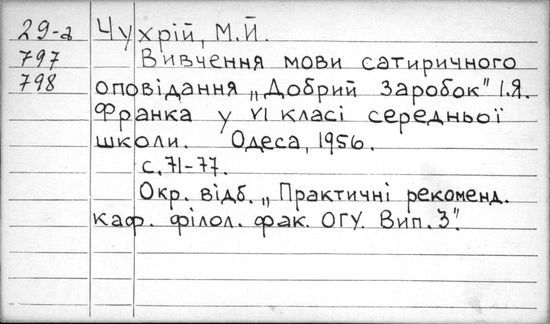 29-а Чухрій, М.Й.
797 Вивчення мови сатиричного
798 оповідання „Добрий заробок" І.Я.
Франка у VI класі середньої
школи. Одеса, 1956.
с. 71-77.
Окр. відб. „Практичні рекоменд.
каф. філол. фак. ОГУ. Вип. 3".